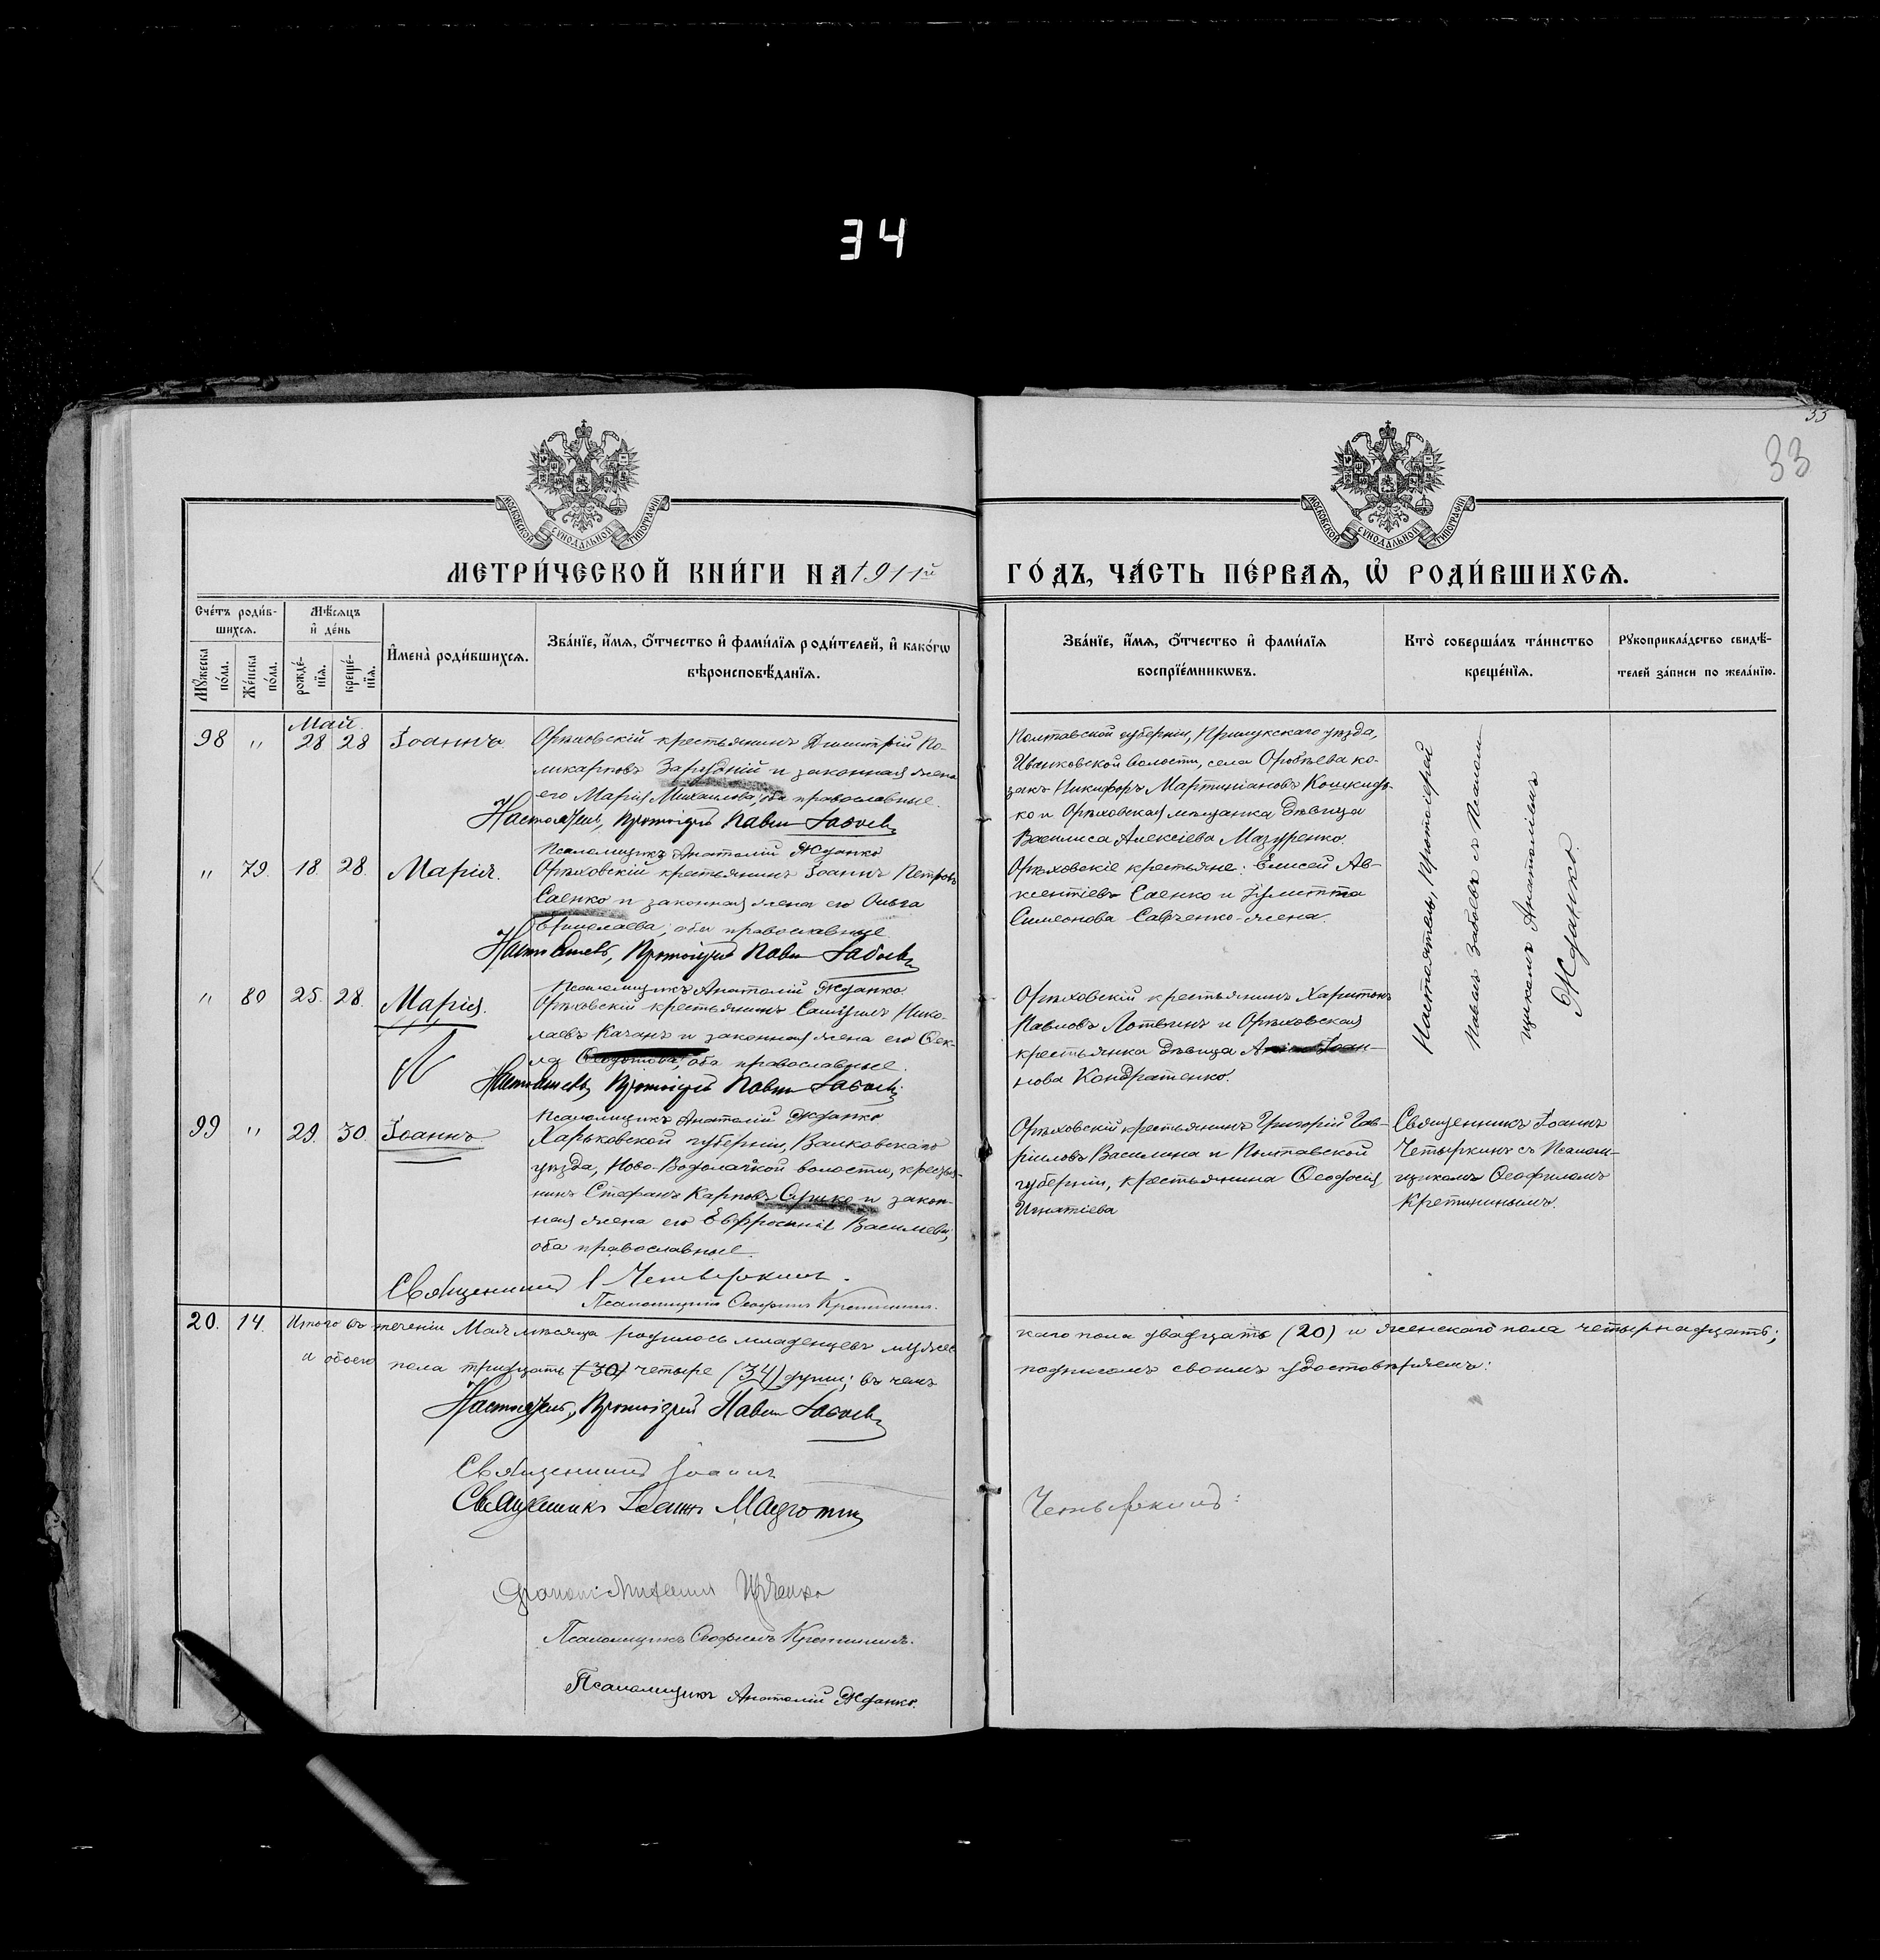 34
33
33
МОСКОВСКОЙ СѴНОДАЛЬНОЙ ТИПОГРАФІИ
МОСКОВСКОЙ СѴНОДАЛЬНОЙ ТИПОГРАФІИ
МЕТРИ́ЧЕСКОЙ КНИ́ГИ НА 1911й ГО́ДЪ, ЧА́СТЬ ПЕ́РВАЯ, Ѡ҆ РОДИ́ВШИХСЯ.
Сче́тъ роди́в-
шихся.
Мѣ́сяцъ
и҆ де́нь
Мꙋ́жеска по́ла.
Же́нска по́ла.
рожде́-
нїя.
креще́-
нїя.
И҆мена̀ роди́вшихся.
Зва́нїе, и҆́мя, ѻ҆́тчество и҆ фами́лїя роди́телей, и҆ како́гѡ
вѣроисповѣ́данїя.
Зва́нїе, и҆́мя, ѻ҆́тчество и҆ фами́лїя
воспрїе́мникѡвъ.
Кто̀ соверша́лъ та́инство
креще́нїя.
Рꙋкоприкла́дство свидѣ́-
телей за́писи по жела́нїю.
Май.
98 " 28 28 Іоаннъ
Орѣховскій крестьянинъ Димитрій По-
ликарповъ Зарудній и законная жена
его Марія Михаилова, оба православные.
Настоятель, Протоіерей Павелъ Забоевъ
Псаломщикъ Анатолій Жданко
Полтавской губерніи, Прилукскаго уѣзда,
Иванковской волости, села Оробьева ко-
закъ Никифоръ Мартиніановъ
ко и Орѣховская мѣщанка дѣвица
Василиса Алексіева Мазуренко.
" 79. 18 28. Марія.
Орѣховскій крестьянинъ Іоаннъ Петровъ
Саенко и законная жена его Ольга
оба православные.
Настоятель, Протоіерей Павелъ Забоевъ
Псаломщикъ Анатолій Жданко.
Орѣховскіе крестьяне: Елисей Ав-
ксентіевъ Саенко и Іулитта
Симеонова Савченко-жена.
" 80 25. 28. Марія.
Орѣховскій крестьянинъ Самуилъ Нико-
лаевъ Качанъ и законная жена его Ѳек-
ла оба православные.
Настоятель, Протоіерей Павелъ Забоевъ
Псаломщикъ Анатолій Жданко
Орѣховскій крестьянинъ Харитонъ
Павловъ Логвинъ и Орѣховская
крестьянка дѣвица Анна Іоан-
нова Кондратенко.
Настоятель, Протоіерей
Павелъ Забоевъ съ Псалом-
щикомъ Анатоліемъ
Жданко.
99 " 29. 30. Іоаннъ
Харьковской губерніи, Валковскаго
уѣзда, Ново-Водолажкой волости, крестья-
нинъ Стефанъ Карповъ и закон-
ная жена его Евфросинія Василіева,
оба православные.
Священникъ І Четыркинъ.
Псаломщикъ Ѳеофилъ Кретининъ.
Орѣховскій крестьянинъ Григорій Гав-
ріиловъ Василина и Полтавской
губерніи, крестьянина Ѳеодосія
Игнатіева
Священникъ Іоаннъ
Четыркинъ съ Псалом-
щикомъ Ѳеофиломъ
Кретининымъ.
20. 14. Итого въ теченіи Мая мѣсяца родилось младенцевъ мужес
каго пола двадцать (20) и женскаго пола четырнадцать;
а обоего пола тридцать (30) четыре (34) души; въ чемъ
подписомъ своимъ удостовѣряемъ:
Настоятель, Протоіерей Павелъ Забоевъ
Священникъ Іоаннъ Четыркинъ:
Священникъ Іоаннъ
Псаломщикъ Ѳеофилъ Кретининъ.
Псаломщикъ Анатолій Жданко.